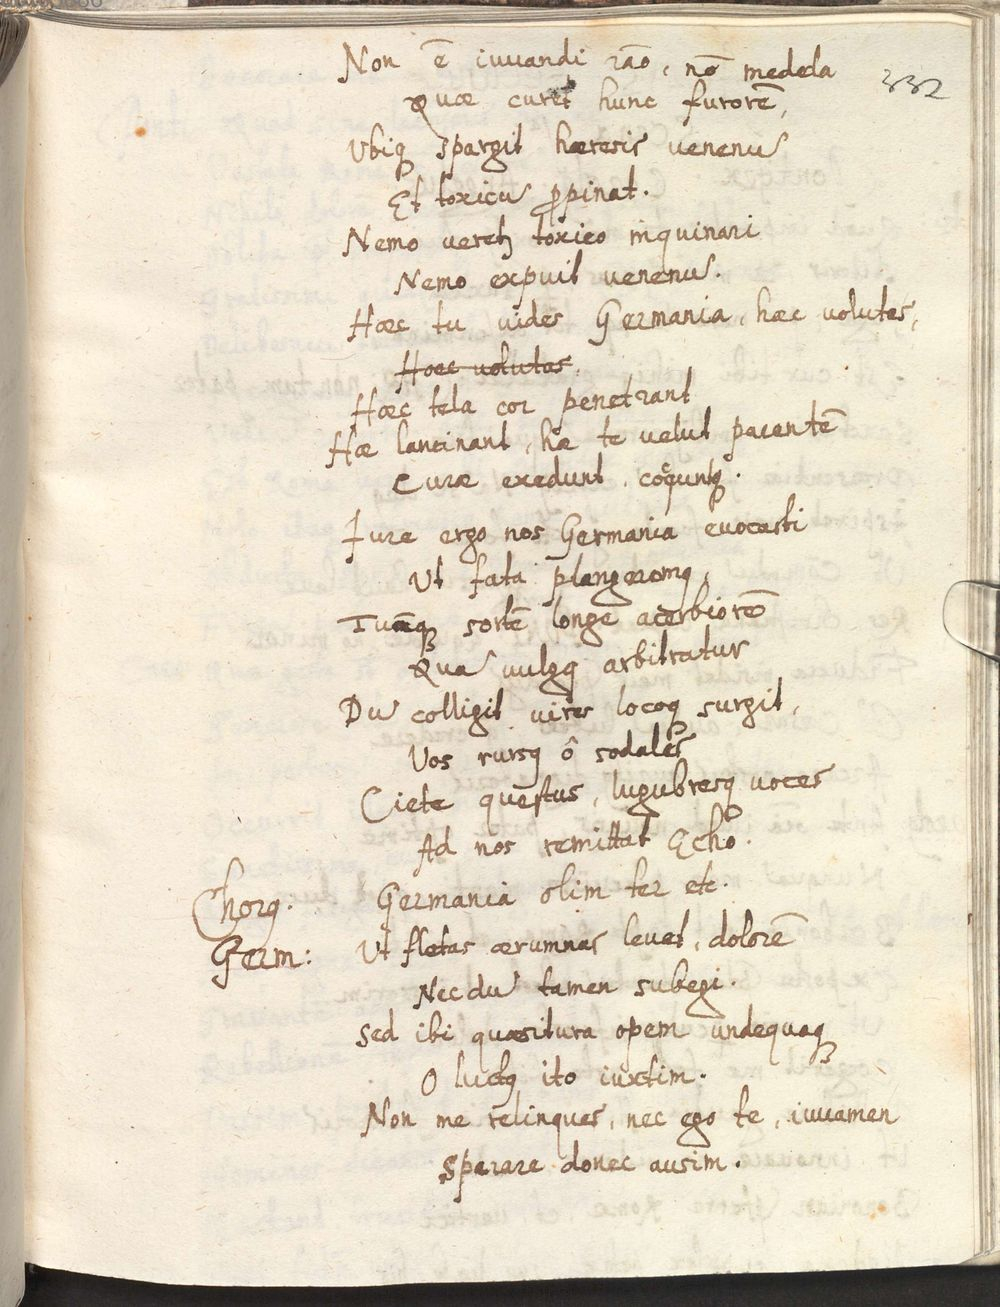 Non ē iuuandi rāo, nō medela
332
Quæ curet hunc furorē,
Vbiq spargit hæresis uenenū
Et toxicū ꝓpinat.
Nemo ueretꝛ toxico inquinari
Nemo expuit uenenū.
Hæc tu uides Germania, hæc volutas,
Hæc volutas.
Hæc tela cor penetrant
Hæ lancinant, hæ te velut pacentē
Curæ exedunt, coquuntꝗ.
Iure ergo nos Germania euocasti
Ut fata plangeremꝗ,
Tuāꝗ sortē longe acerbiorē
Quā uulgꝗ arbitratur
Dū colligit uires locoꝗ surgit,
Vos rursꝗ ô sodales
Ciete questus, lugubresꝗ uoces
Ad nos remittat Echo.
Chorꝗ. Germania olim ter etc.
Germ: Ut fletas ærumnas leuet, dolorē
Necdū tamen subegi.
Sed ibi quæsitura opem undequaꝗ
O luctꝗ ito iuxtim.
Non me relinques, nec ego te, iuuamen
Sperare donec ausim.